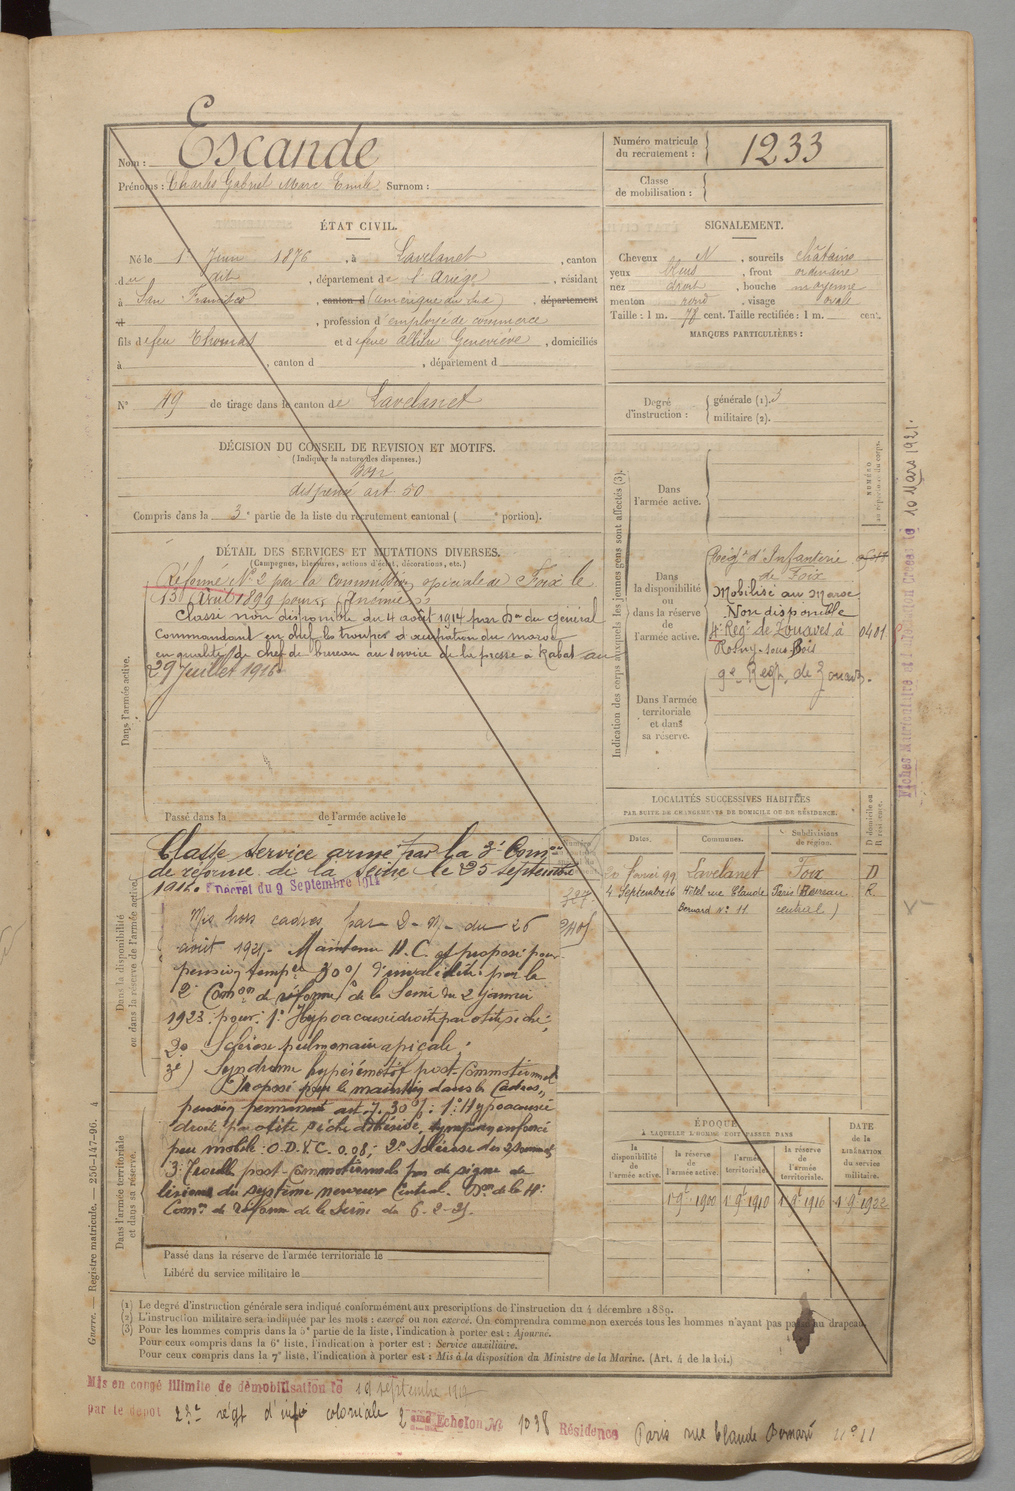 Nom : Escande
Prénoms : Charles Gabriel Marc Emile Surnom :
Numéro matricule du recrutement : 1233
Classe de mobilisation :
ÉTAT CIVIL.
Né le 1er Juin 1876, à Lavelanet, canton
du dit, département de l'Ariège, résidant
à San Francisco, canton d (amérique du Sud), département
d , profession d'employé de commerce
fils de feu Thomas et de feue Geneviève, domiciliés
à , canton d , département d
SIGNALEMENT.
Cheveux N, sourcils châtains
yeux, front ordinaire
nez droit, bouche moyenne
menton rond, visage ovale
Taille : 1 m. 78 cent. Taille rectifiée : 1 m. cent.
MARQUES PARTICULIÈRES :
N° 49 de tirage dans le canton de Lavelanet
Degré d'instruction : générale (1). 3
militaire (2).
DÉCISION DU CONSEIL DE REVISION ET MOTIFS.
(Indiquer la nature des dispenses.)
Bon
dispensé art 50
Compris dans la 3e partie de la liste du recrutement cantonal ( e portion).
DÉTAIL DES SERVICES ET MUTATIONS DIVERSES.
(Campagnes, blessures, actions d'éclat, décorations, etc.)
Dans l'armée active.
Réformé N° 2 par la Commission spéciale de Foix le
13 Avril 1899 pour "Anémie"
Classé non disponible du 4 août 1914 par Don du général
Commandant en chef les troupes d'occupation du maroc
en qualité de chef de bureau au service de la presse à Rabat au
29 Juillet 1916
Passé dans la de l'armée active le
Indication des corps auxquels les jeunes gens sont affectés (3).
NUMÉRO au répertoire du corps.
Dans l'armée active.
Dans la disponibilité ou dans la réserve de l'armée active.
Régt d'Infanterie
de Foix
Mobilisé au Maroc
Non disponible
4e Régt de Zouaves à 0401
Rosny-sous-Bois
9e Régt de Zouaves.
Dans l'armée territoriale et dans sa réserve.
Fiches 10 Mars 1921.
Dans la disponibilité ou dans la réserve de l'armée active.
Classé service armé par la 3e Comon
de réforme de la Seine le 25 septembre
191. Décret du 9 Septembre 1914
Mis hors cadres par D. M. du 26
août 1921. Maintenu H.C. et proposé pour
pension tempre 30% d'invalidité par la
2e Comon de réforme de la Seine du 2 janvier
1923 pour : 1° Hypoacousie droite par otite sèche ;
2° Sclérose pulmonaire apicale ;
3°) Syndrome post-Commotionnel
Proposé pour le maintien dans les Cadres,
pension permanente art. 7. 30% : 1° Hypoacousie
droite par otite sèche, tympan enfoncé
peu mobile : O.D.V.C. 0.08 ; 2° Sclérose des 2 sommets
3° Troubles post-Commotionnels pas de signe de
lésions du système nerveux Central. Don de la
Comon de réforme de la Seine du 6-2-25.
Dans l'armée territoriale et dans sa réserve.
Passé dans la réserve de l'armée territoriale le
Libéré du service militaire le
LOCALITÉS SUCCESSIVES HABITÉES
PAR SUITE DE CHANGEMENTS DE DOMICILE OU DE RÉSIDENCE.
Dates. Communes. Subdivisions de région. D domicile ou R résidence.
99 Lavelanet Foix D
4 Septembre 16 Hôtel rue Claude Paris (Bureau R
Bernard n° 11 central)
ÉPOQUE
À LAQUELLE L'HOMME DOIT PASSER DANS
la disponibilité de l'armée active. la réserve de l'armée active. l'armée territoriale. la réserve de l'armée territoriale. DATE de la LIBÉRATION du service militaire.
1 9bre 1900 1 9bre 1910 1 9bre 1916 1 9bre 1922
(1) Le degré d'instruction générale sera indiqué conformément aux prescriptions de l'instruction du 4 décembre 1889.
(2) L'instruction militaire sera indiquée par les mots : exercé ou non exercé. On comprendra comme non exercés tous les hommes n'ayant pas passé au drapeau.
(3) Pour les hommes compris dans la 5e partie de la liste, l'indication à porter est : Ajourné.
Pour ceux compris dans la 6e liste, l'indication à porter est : Service auxiliaire.
Pour ceux compris dans la 7e liste, l'indication à porter est : Mis à la disposition du Ministre de la Marine. (Art. 4 de la loi.)
Guerre. — Registre matricule. — 256-147-96. 4
Mis en congé illimité de démobilisation le 19 septembre 1919
par le dépôt 23e régt d'infie coloniale 2ème Echelon N° 1038 Résidence Paris rue Claude Bernard n° 11